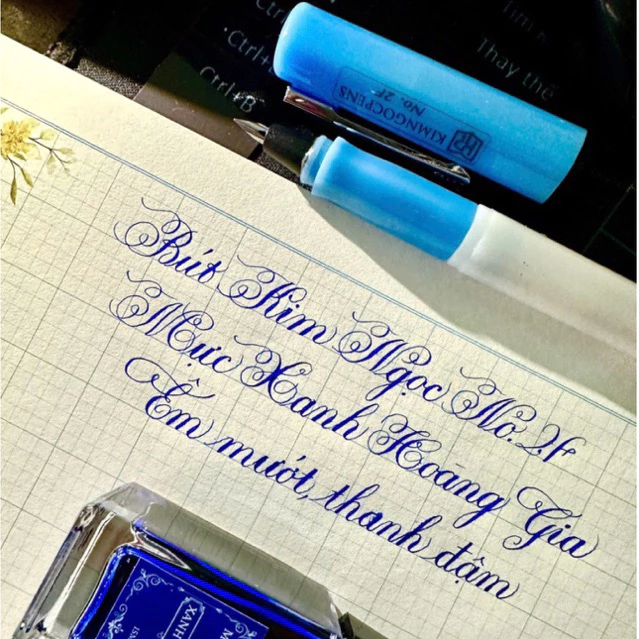 Ctrl+B
Thay thế
KIMNGOCPENS
No. 2F
Bút Kim Ngọc No. 2f
Mực Xanh Hoàng Gia
Êm mướt, thanh đậm
XANH